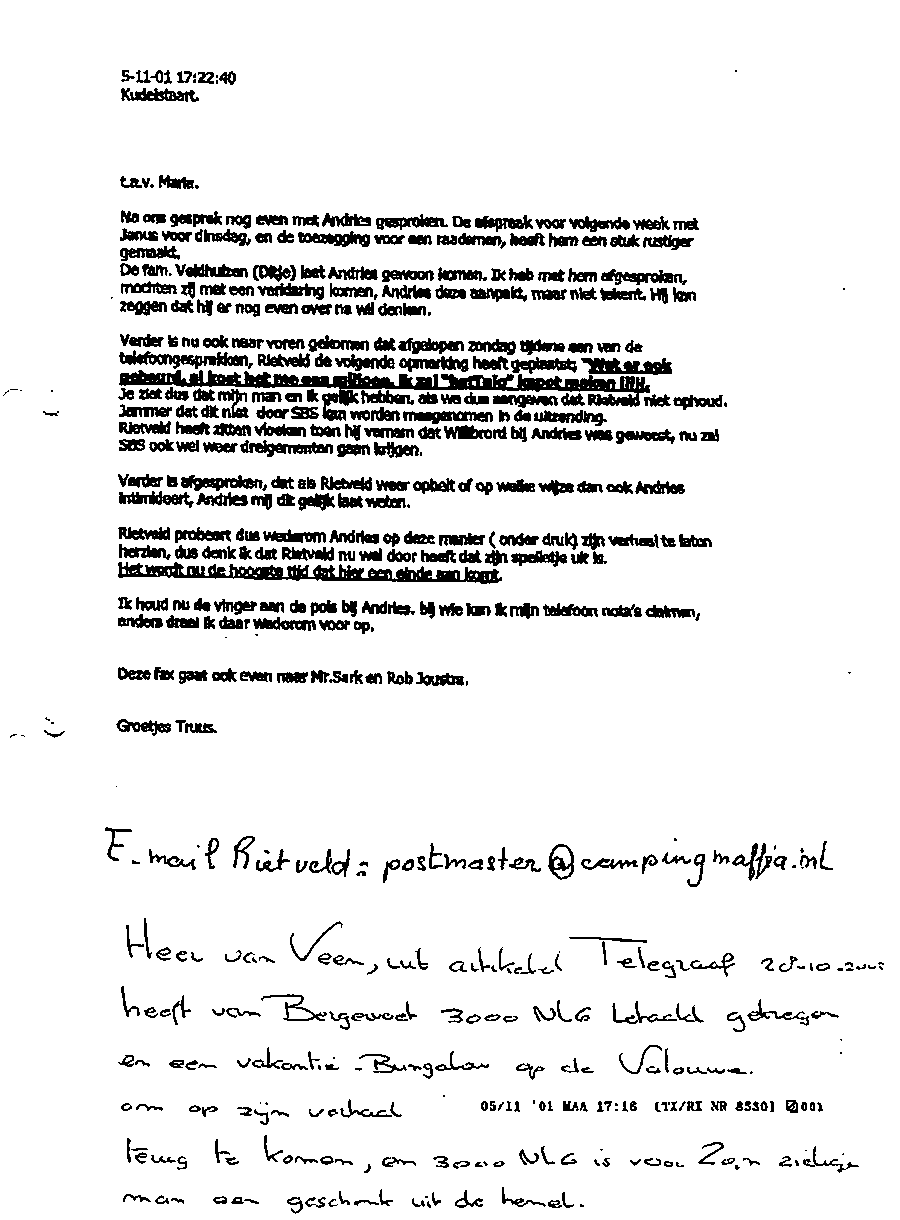 5-11-01 17:22:40
Kudelstaart.
t.a.v. Maria.
Na ons gesprek nog even met Andries gesproken. De afspraak voor volgende week met
Janus voor dinsdag, en de toezegging voor een raadsman, heeft hem een stuk rustiger
gemaakt.
De fam. Veldhuizen (Ditje) laat Andries gewoon komen. Ik heb met hem afgesproken,
mochten zij met een verklaring komen, Andries deze aanpakt, maar niet tekent. Hij kan
zeggen dat hij er nog even over na wil denken.
Verder is nu ook naar voren gekomen dat afgelopen zondag tijdens een van de
telefoongesprekken, Rietveld de volgende opmerking heeft geplaatst; "Wat er ook
gebeurd, al kost het me een miljoen, ik zal kapot maken !!!!.
Je ziet dus dat mijn man en ik gelijk hebben, als we dus aangeven dat Rietveld niet ophoud.
Jammer dat dit niet door SBS kan worden meegenomen in de uitzending.
Rietveld heeft zitten vloeken toen hij vernam dat Willibrord bij Andries was geweest, nu zal
SBS ook wel weer dreigementen gaan krijgen.
Verder is afgesproken, dat als Rietveld weer opbelt of op welke wijze dan ook Andries
intimideert, Andries mij dit gelijk laat weten.
Rietveld probeert dus wederom Andries op deze manier ( onder druk) zijn verhaal te laten
herzien, dus denk ik dat Rietveld nu wel door heeft dat zijn spelletje uit is.
Het wordt nu de hoogste tijd dat hier een einde aan komt.
Ik houd nu de vinger aan de pols bij Andries. bij wie kan ik mijn telefoon nota's claimen,
anders draai ik daar wederom voor op.
Deze fax gaat ook even naar Mr.Sark en Rob Joustra.
Groetjes Truus.
E-mail Rietveld: postmaster@campingmaffia.nl
Heer van Veen, uit artikel Telegraaf
heeft van Bergevoet 3000 NLG betaald gekregen
en een vakantie-Bungalow op de Valouwe.
om op zijn verhaal
05/11 '01 MAA 17:16 [TX/RX NR 8530] 001
terug te komen, en 3000 NLG is voor Zo,n zielige
man een geschenk uit de hemel.